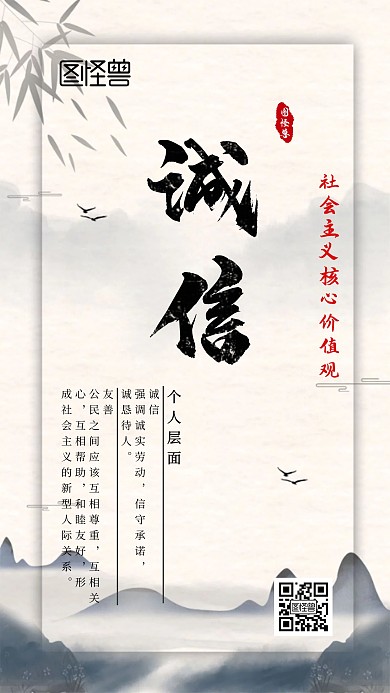 图怪兽
图怪兽
诚信
社会主义核心价值观
个人层面
诚信
强调诚实劳动，信守承诺，
诚恳待人。
友善
公民之间应该互相尊重，互相关
心，互相帮助，和睦友好，形
成社会主义的新型人际关系。
图怪兽